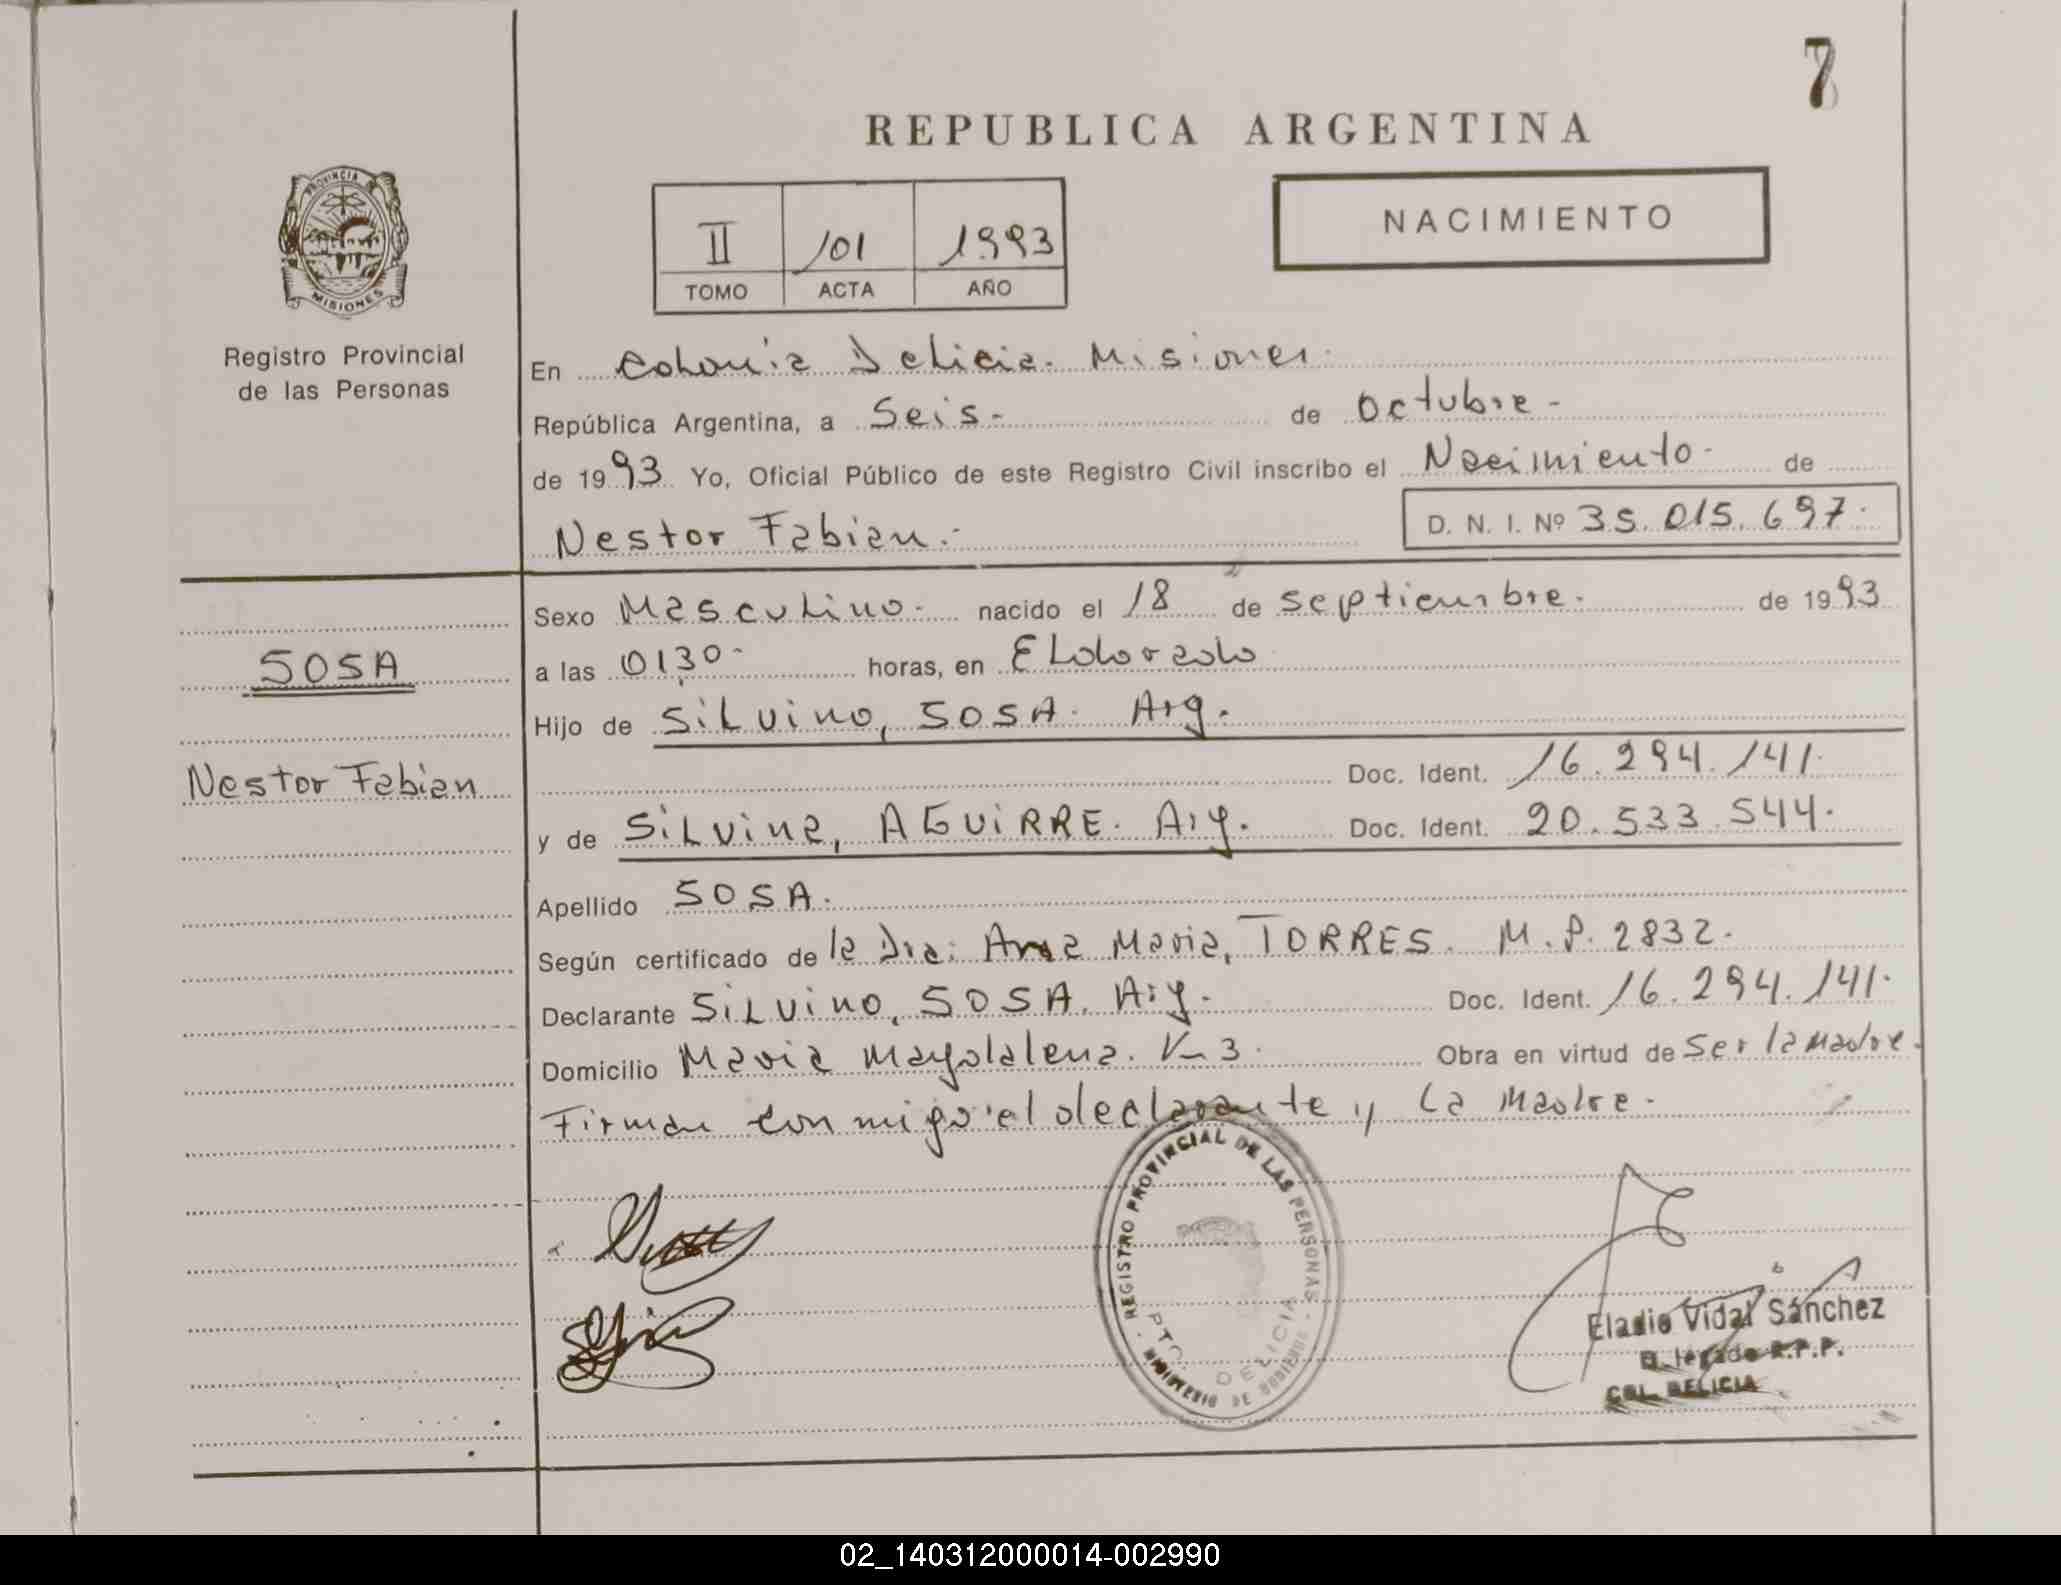 7
REPUBLICA ARGENTINA
PROVINCIA DE
MISIONES
Registro Provincial
de las Personas
II 101 1993
TOMO ACTA AÑO
NACIMIENTO
En Colonia Delicia. Misiones.
República Argentina, a Seis - de Octubre -
de 1993 Yo, Oficial Público de este Registro Civil inscribo el Nacimiento - de
Nestor Fabian. - D. N. I. Nº 35.015.697.
Sexo Masculino. nacido el 18 de septiembre. de 1993
SOSA
a las 01,30 - horas, en ELdorado
Hijo de SiLvino, SOSA. Arg.
Nestor Fabian
Doc. Ident. 16.294.141.
y de SiLvina, AGUiRRE. Arg. Doc. Ident. 20.533.544.
Apellido SOSA.
Según certificado de la Dra: Ana Maria, TORRES. M.P. 2832.
Declarante SiLvino, SOSA. Arg. Doc. Ident. 16.294.141.
Domicilio Maria Magdalena. K 3. Obra en virtud de Ser la Madre.
Firman con migo el declarante y La Madre.
REGISTRO PROVINCIAL DE LAS PERSONAS
MINISTERIO DE GOBIERNO
PTO. DELICIA
Eladio Vidal Sánchez
Delegado R.P.P.
COL. DELICIA
02_140312000014-002990